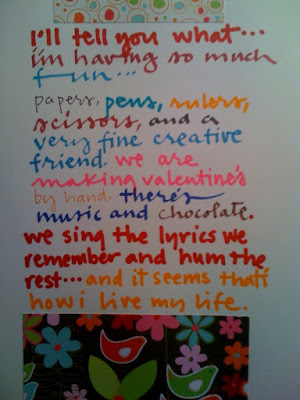 i'll tell you what...
i'm having so much
fun...
papers, pens, rulers,
scissors, and a
very fine creative
friend. we are
making valentine's
by hand. there's
music and chocolate.
we sing the lyrics we
remember and hum the
rest... and it seems that's
how i live my life.